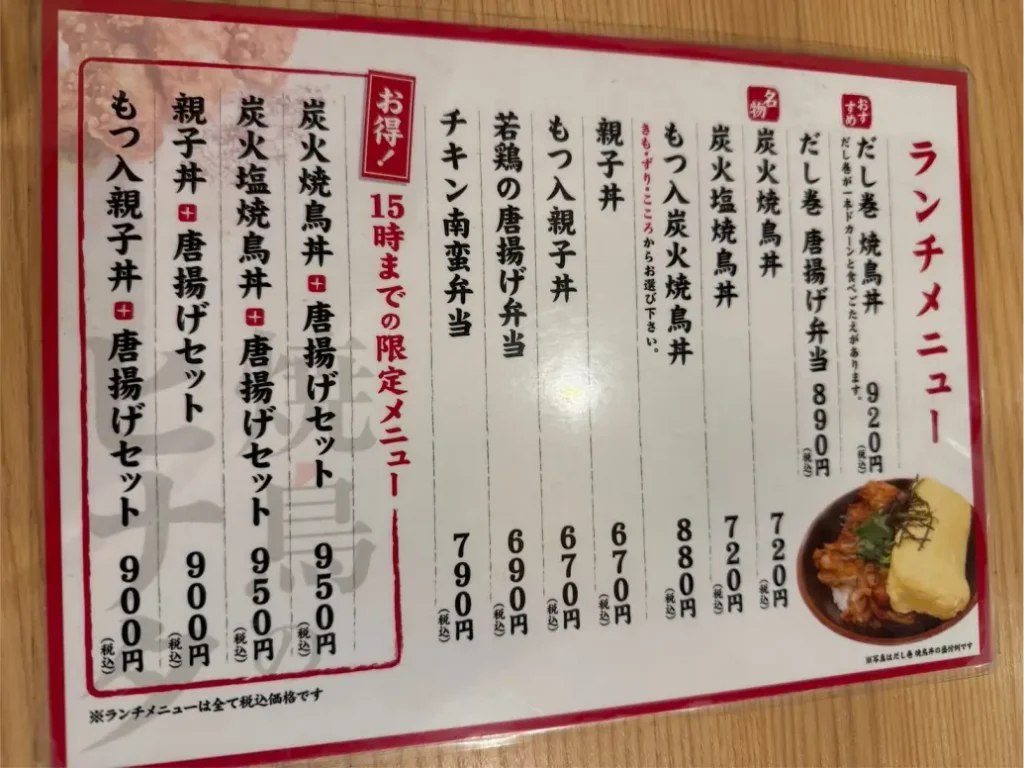 ランチメニュー
おすすめ
だし巻 焼鳥丼 920円(税込)
だし巻が一本ドカーンと食べごたえがあります。
だし巻 唐揚げ弁当 890円(税込)
名物
炭火焼鳥丼 720円(税込)
炭火塩焼鳥丼 720円(税込)
もつ入炭火焼鳥丼 880円(税込)
きも・ずり・こころからお選び下さい。
親子丼 670円(税込)
もつ入親子丼 670円(税込)
若鶏の唐揚げ弁当 690円(税込)
チキン南蛮弁当 790円(税込)
お得!
15時までの限定メニュー
炭火焼鳥丼+唐揚げセット 950円(税込)
炭火塩焼鳥丼+唐揚げセット 950円(税込)
親子丼+唐揚げセット 900円(税込)
もつ入親子丼+唐揚げセット 900円(税込)
焼鳥の
ヒナタ
※写真はだし巻 焼鳥丼の盛付例です
※ランチメニューは全て税込価格です